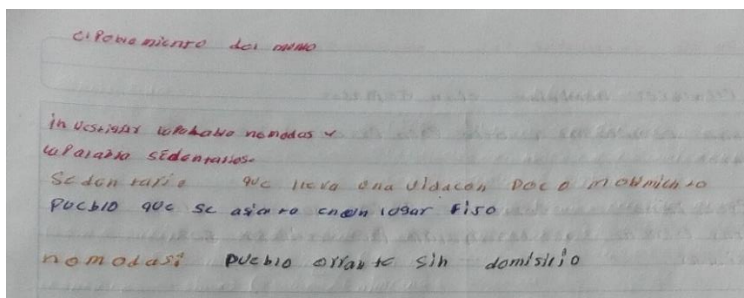 el Poblamiento del mundo
investigar la Palabra nomodas y
la Palabra sedentarios.
sedentario que lleva una vida con poco mobimiento
Pueblo que se asienta en un lugar fiso
nomodas: Pueblo errante sin domisilio